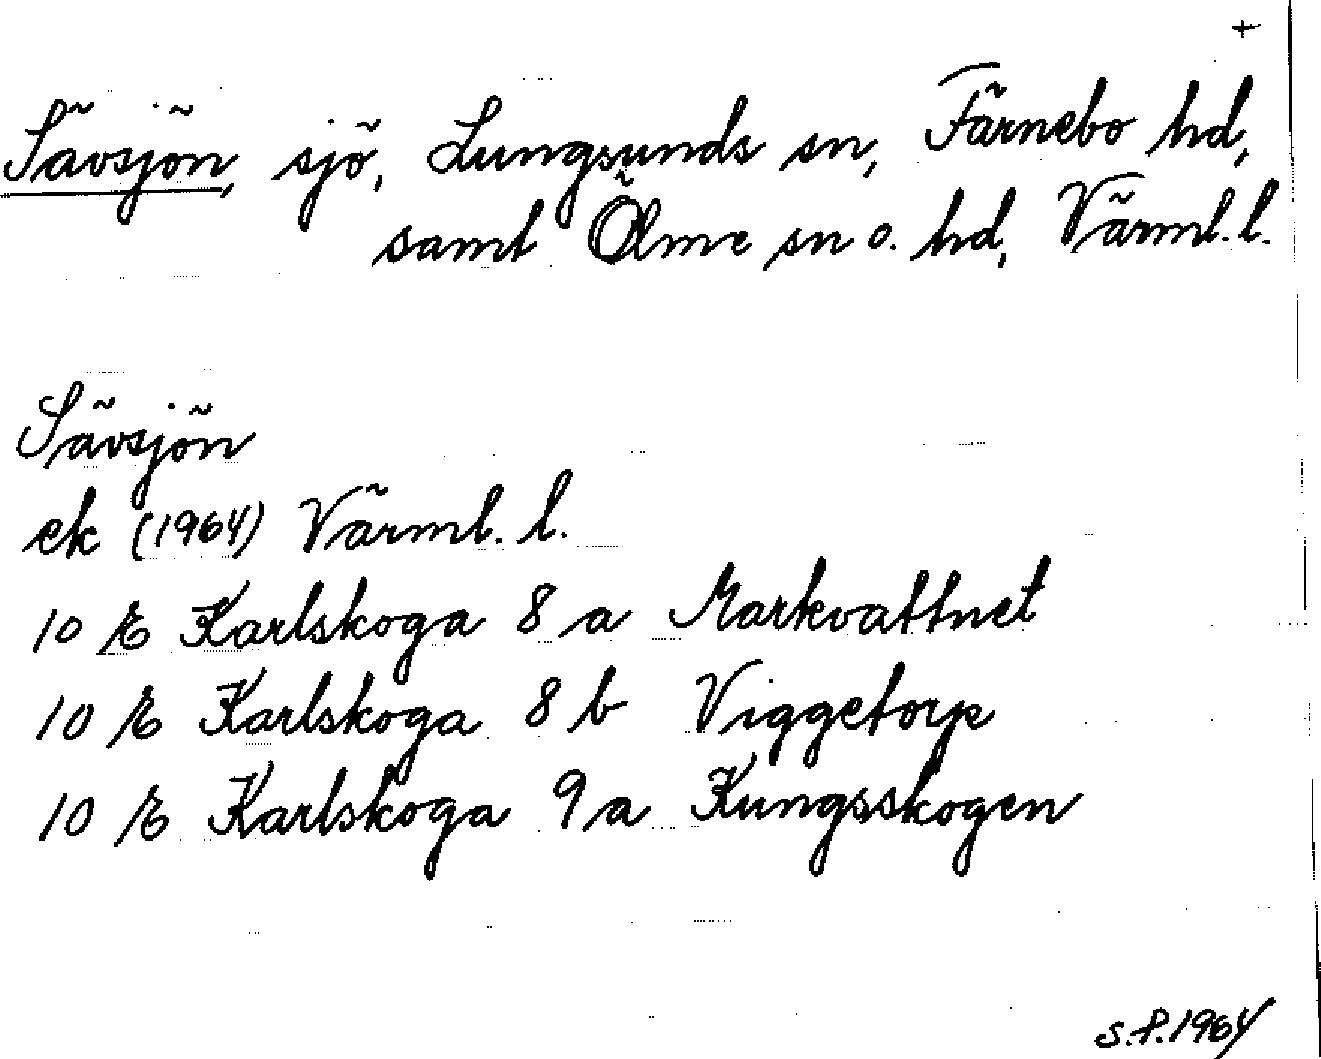 +
Sävsjön, sjö, Lungsunds sn, Färnebo hd,
samt Ölme sn o. hd, Värml. l.
Sävsjön
ek (1964) Värml. l.
10 E Karlskoga 8 a Markvattnet
10 E Karlskoga 8 b Viggetorp
10 E Karlskoga 9 a Kungsskogen
S.P. 1964